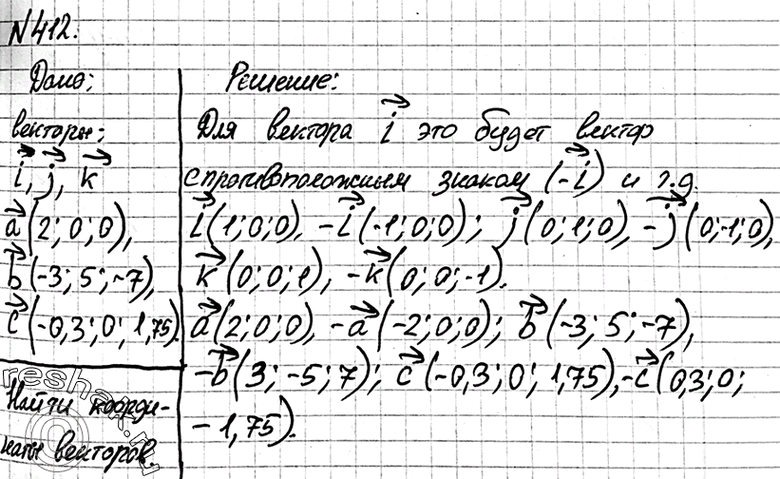 №412.
Дано:
векторы:
i, j, k
a(2; 0; 0),
b(-3; 5; -7),
c(-0,3; 0; 1,75).
Найти коорди-
наты векторов.
Решение:
Для вектора i это будет вектор
с противоположным знаком (-i) и т.д.
i(1; 0; 0), -i(-1; 0; 0); j(0; 1; 0), -j(0; -1; 0),
k(0; 0; 1), -k(0; 0; -1).
a(2; 0; 0), -a(-2; 0; 0); b(-3; 5; -7),
-b(3; -5; 7); c(-0,3; 0; 1,75), -c(0,3; 0;
-1,75).
reshak.ru